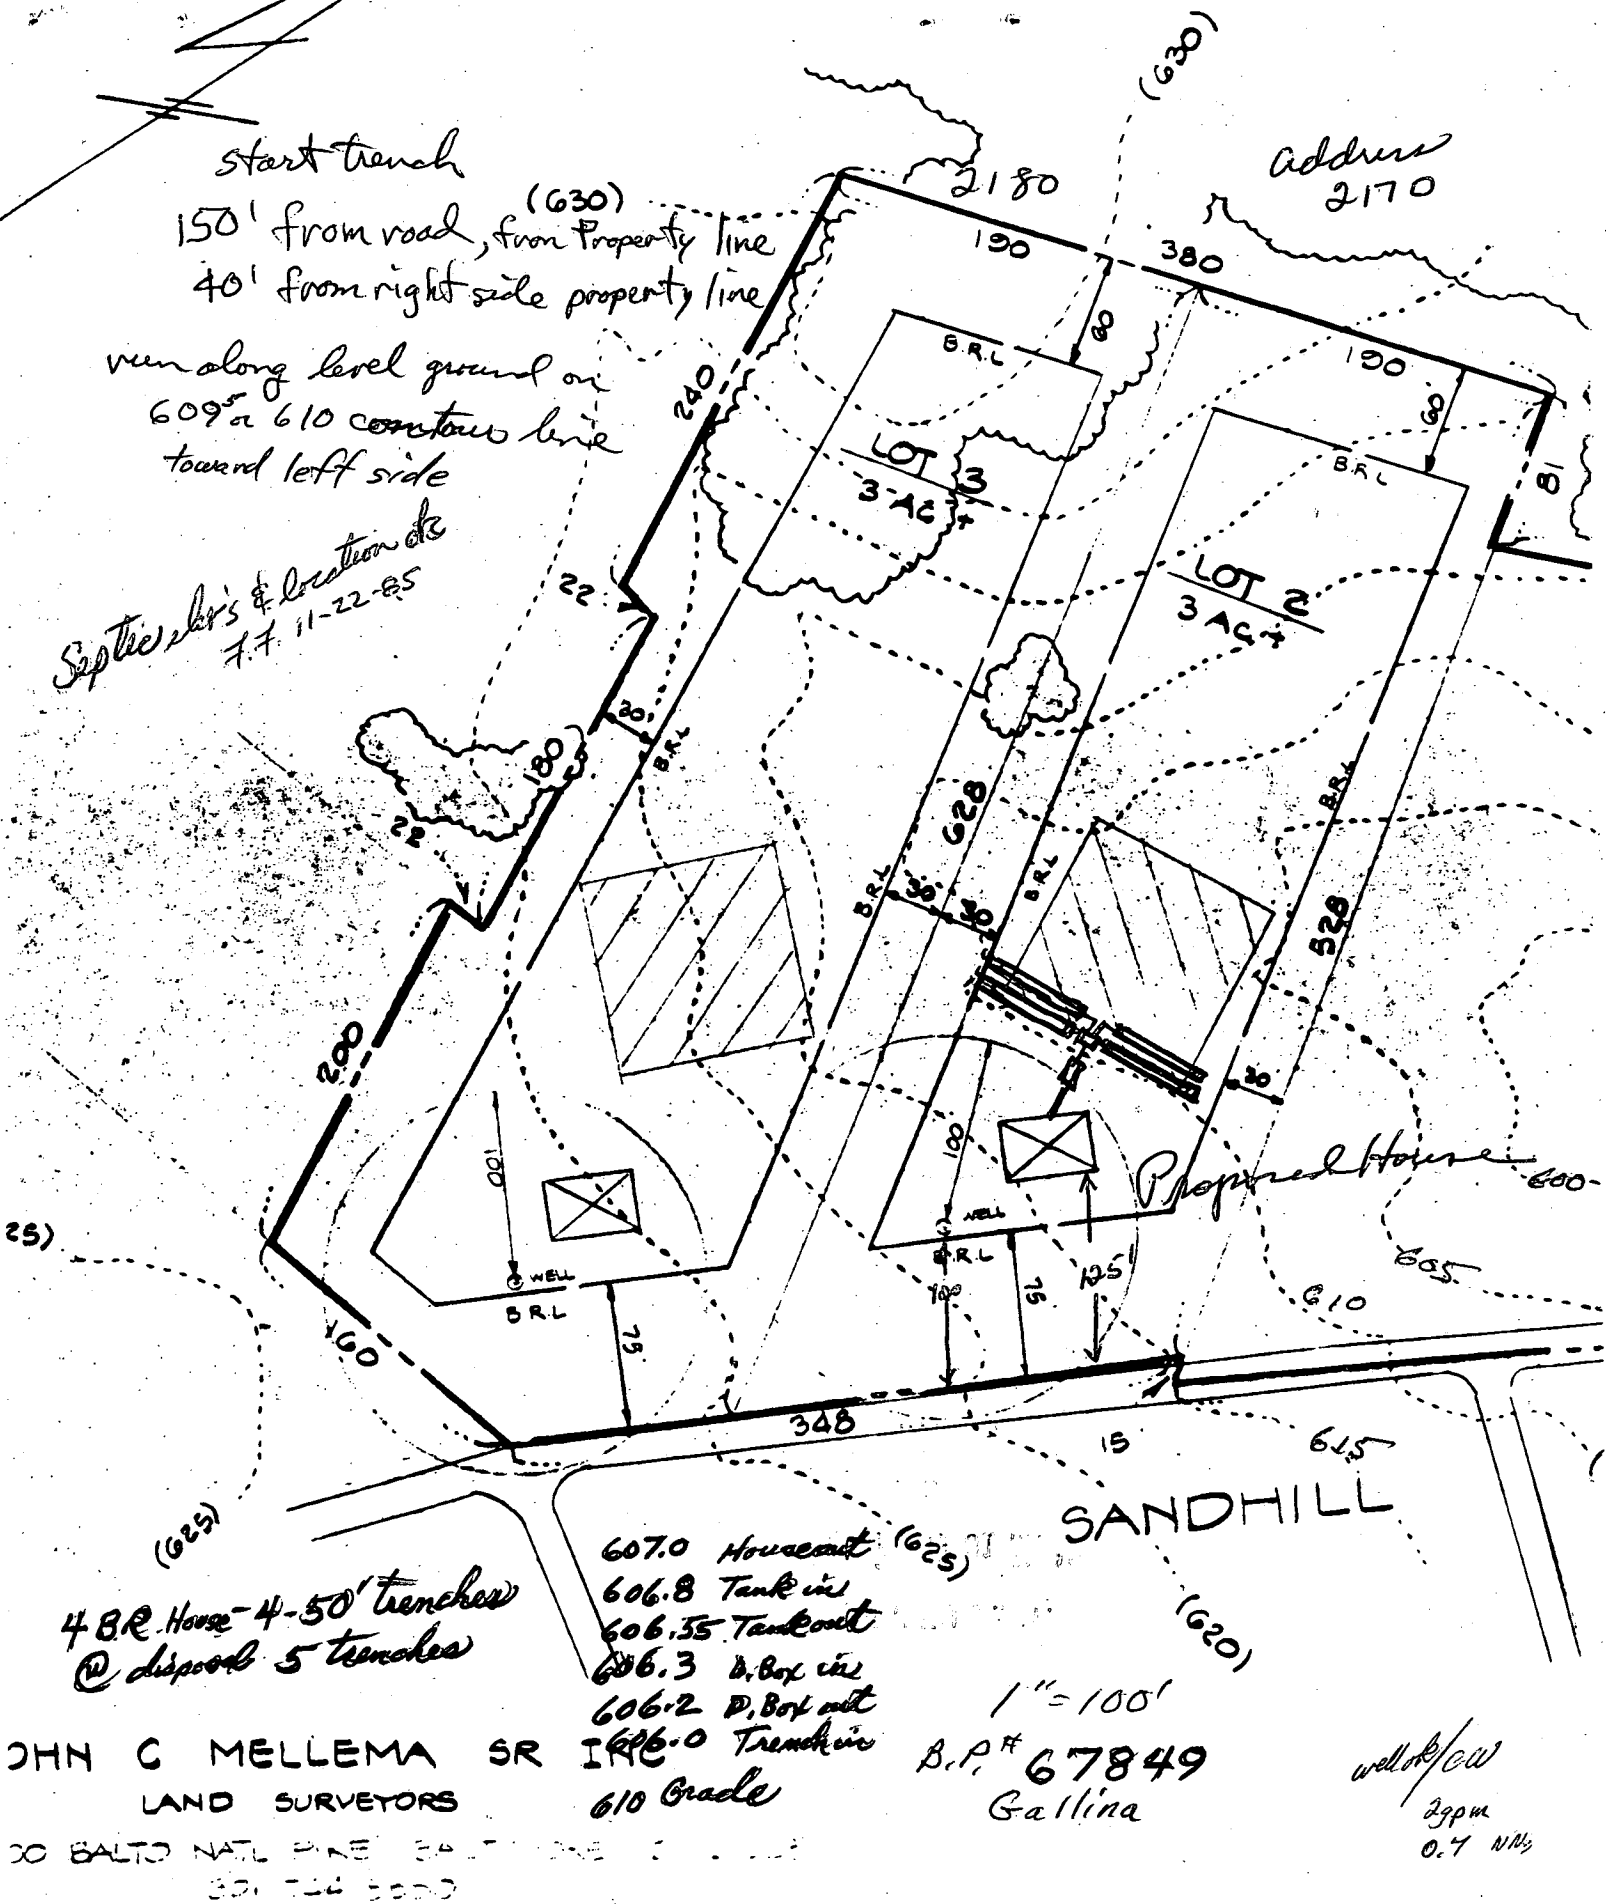 (630)
start trench
(630)
150' from road, from Property line
40' from right side property line
run along level ground on
609⁵ or 610 contour line
toward left side
Septic elev's & location ok
F.F. 11-22-85
2180
address
2170
190
380
190
60
60
B.R.L
B.R.L
240
81
LOT 3
3 AC +
LOT 2
3 AC +
22
30
180
B.R.L
22
628
B.R.L
B.R.L
B.R.L
30
30
528
200
30
100
100
Proposed House
600
25)
WELL
B.R.L
WELL
B.R.L
605
610
75
100
75
125'
160
348
15
615
SANDHILL
(625)
(625)
(620)
4 B.R. House - 4-50' trenches
@ disposal 5 trenches
607.0 House out
606.8 Tank in
606.55 Tank out
606.3 D.Box in
606.2 D.Box out
606.0 Trench in
610 Grade
1" = 100'
B.P.# 67849
Gallina
well ok/
2gpm
0.7
OHN C MELLEMA SR INC
LAND SURVEYORS
00 BALTO NATL PIKE